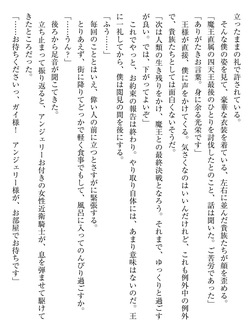 立ったままの礼で許されている。
な僕の姿を見て、豪華な衣装を着ている、左右に並んだ貴族たちが顔を歪める。
「魔王直属の四天王最後のひとりを討伐したとのこと、話は聞いた。ご苦労であった」
「ありがたきお言葉、身に余る光栄です」
王様が直接、僕に声をかけてくる。気さくなのはいいんだけれど、これも例外中の例外
で、貴族たちとしては面白くないそうだ。
「次は人類の生き残りをかけ、魔王との最終決戦となろう。それまで、ゆっくりと過ごす
が良い。では、下がってよいぞ」
これでやっと、お約束の報告は終わり。やり取り自体には、あまり意味はないのだ。王
に一礼してから、僕は謁見の間を後にする。
「ふう……」
毎回のこととはいえ、偉い人の前に立つとさすがに緊張する。
とりあえず、街に降りてどっかで軽く食事でもして、風呂に入ってのんびり過ごすか。
「……うん？」
後ろから足音が聞こえてきた。
立ち止まって振り返ると、アンジェリーお付きの女性近衛騎士が、息を弾ませて駆けて
きたところだった。
「……お待ちくださいっ、ガイ様！　アンジェリー様が、お部屋でお待ちです」